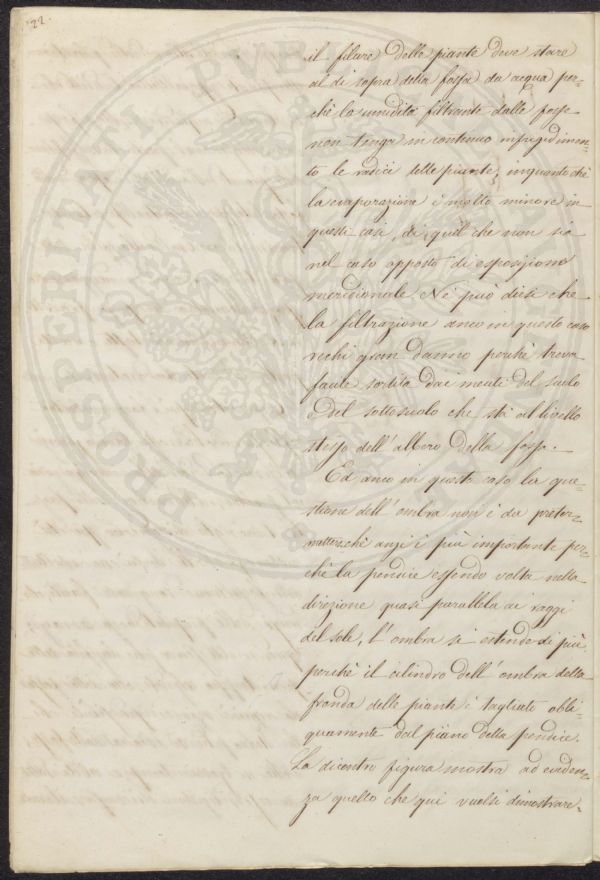 22.
il filare delle piante deve stare
al di sopra della fossa da acqua per-
chè la umidità filtrante dalle fosse
non tenga in continuo infrigidimen-
to le radici delle piante, inquantochè
la evaporazione è molto minore in
questi casi, di quel che non sia
nel caso opposto di esposizione
meridionale. Nè può dirsi che
la filtrazione anco in questo caso
rechi gran danno perchè trova
facile sortita dai meati del suolo
e del sottosuolo che stà al livello
stesso dell'albero della fossa.
Ed anco in questo caso la que-
stione dell'ombra non è da preter-
mettere, chè anzi è più importante per-
chè la pendice essendo volta nella
direzione quasi parallela ai raggi
del sole, l'ombra si estende di più,
perchè il cilindro dell'ombra della
fronda delle piante è tagliato obli-
quamente dal piano della pendice.
La dicontro figura mostra ad eviden-
za quello che qui vuolsi dimostrare.
PROSPERITATI PVBLICAE